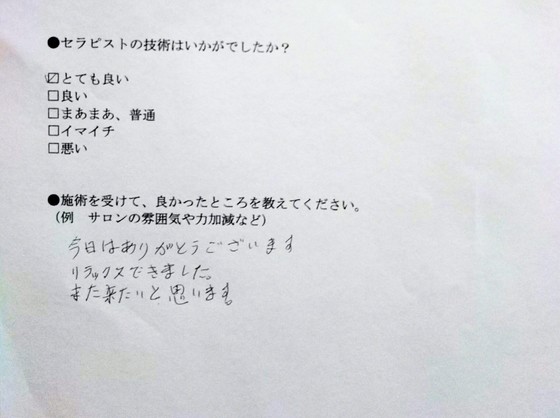 ●セラピストの技術はいかがでしたか？
☑とても良い
□良い
□まあまあ、普通
□イマイチ
□悪い
●施術を受けて、良かったところを教えてください。
（例　サロンの雰囲気や力加減など）
今日はありがとうございます
リラックスできました。
また来たいと思います。